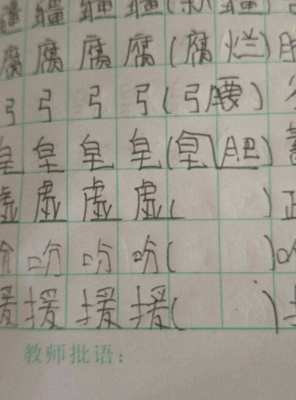 腐 腐 腐 腐 (腐烂)
弓 弓 弓 弓 (弓腰)
皇 皇 皇 皇
虚 虚 虚 虚 ( )
吩 吩 吩 吩 ( )
援 援 援 援 ( )
教师批语：